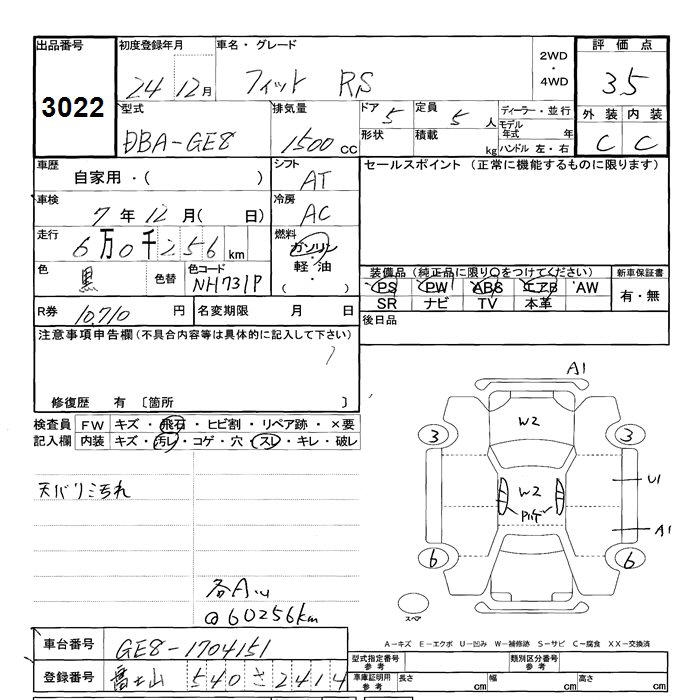 出品番号 初度登録年月 車名・グレード 評価点
3022 24 12月 フィット RS 2WD・4WD 35
型式 排気量 ドア 定員 ディーラー・並行 外装 内装
DBA-GE8 1500 cc 5 5 人 モデル年式 年 C C
形状 積載 kg ハンドル 左・右
車歴 シフト セールスポイント (正常に機能するものに限ります)
自家用・( ) AT
車検 冷房
7 年 12 月( 日) AC
走行 燃料
6万0千256 km ガソリン・軽油 ( )
色 色替 色コード 装備品(純正品に限り○をつけてください) 新車保証書
黒 NH731P PS PW ABS エアB AW 有・無
SR ナビ TV 本革
R券 10,710 円 名変期限 月 日 後日品
注意事項申告欄(不具合内容等は具体的に記入して下さい)
修復歴 有 〔箇所 〕
検査員 FW キズ・飛石・ヒビ割・リペア跡・×要
記入欄 内装 キズ・汚レ・コゲ・穴・スレ・キレ・破レ
A1
W2
3 3
U1
W2
A1
6 6
スペア
汚れ
@60256km
A-キズ E-エクボ U-凹み W-補修跡 S-サビ C-腐食 XX-交換済
車台番号 GE8-1704151 型式指定番号 参考 類別区分番号 参考
登録番号 富士山 540 さ 2414 車庫証明用 参考 長さ cm 幅 cm 高さ cm